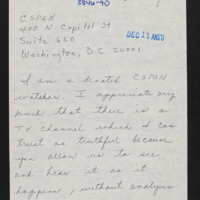 3846-90
1
CSPAN
400 N Capitol St
Suite 650
Washington, D.C 20001
DEC 11 RECD
I am a CSPAN
watcher. I appreciate very
much that there is a
TV channel which I can
trust as truthful because
you allow us to see
and hear it as it
happens, without analysis